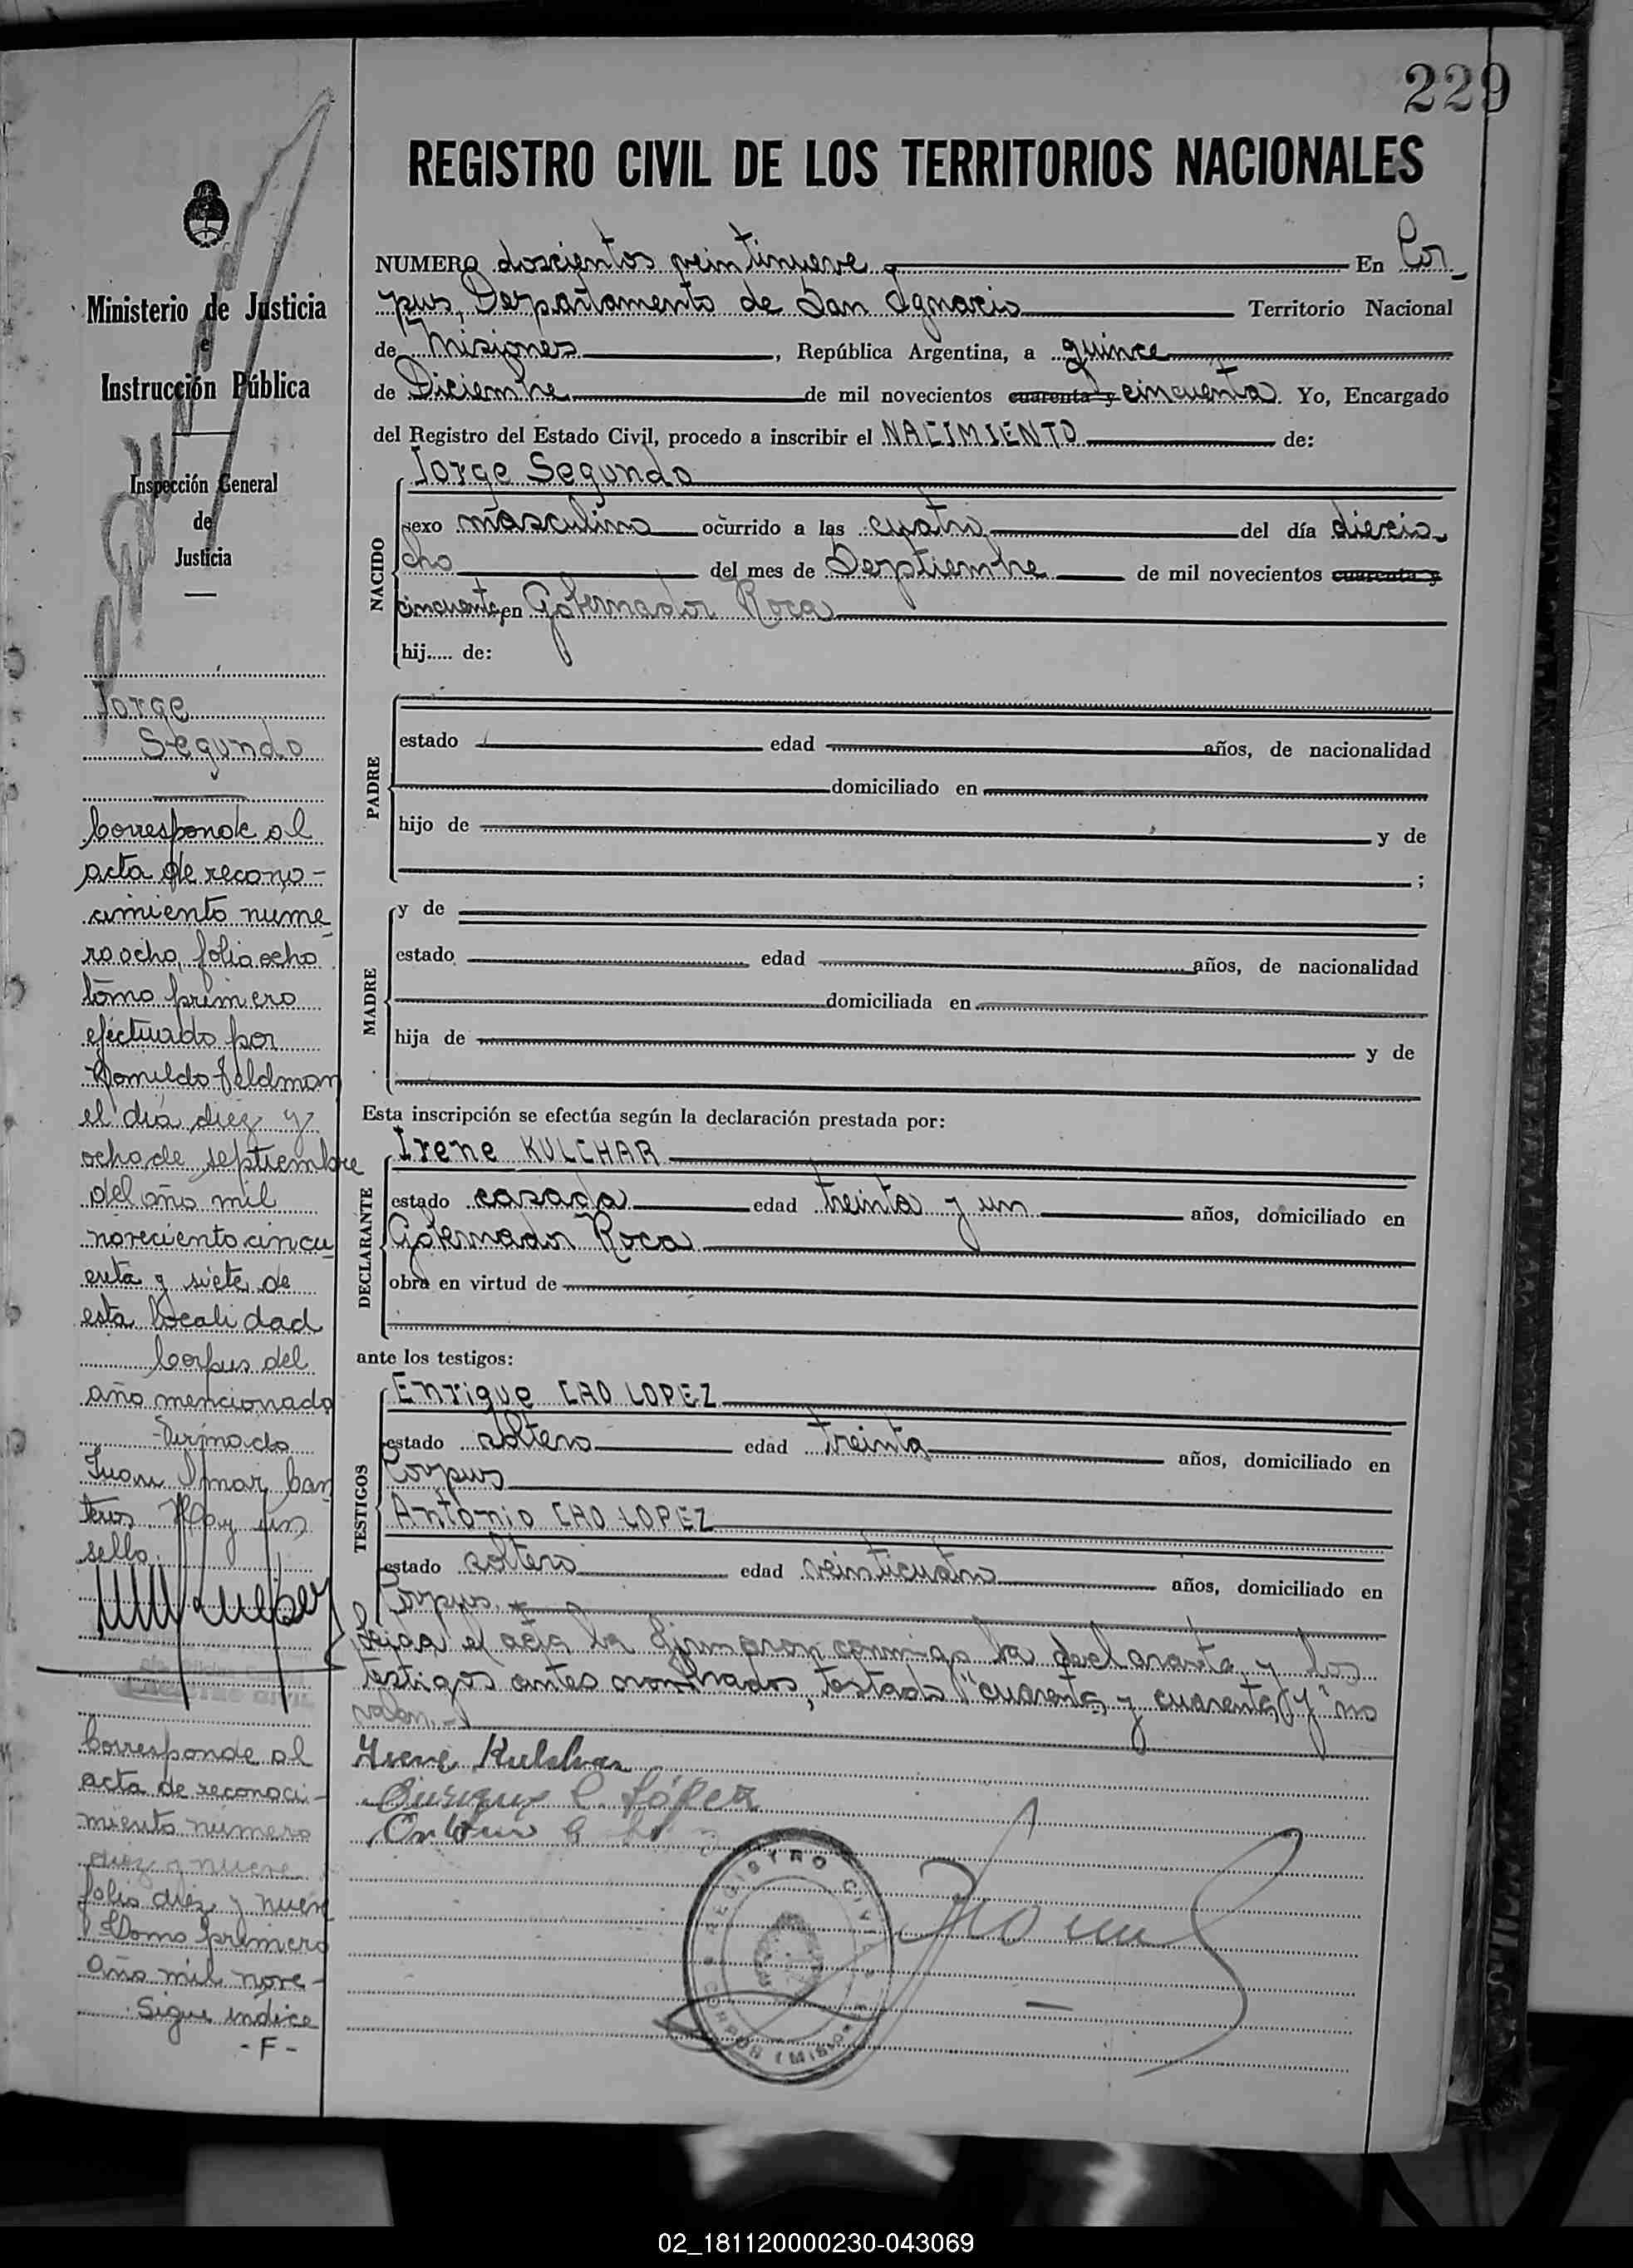 229
REGISTRO CIVIL DE LOS TERRITORIOS NACIONALES
NUMERO doscientos veintinueve En Cor-
pus, Departamento de San Ignacio Territorio Nacional
de Misiones, República Argentina, a quince
de Diciembre de mil novecientos cuarenta y cincuenta. Yo, Encargado
del Registro del Estado Civil, procedo a inscribir el NACIMIENTO de:
NACIDO
Jorge Segundo
sexo masculino ocurrido a las cuatro del día diecio-
cho del mes de Septiembre de mil novecientos cuarenta y
cincuenta en Gobernador Roca
hij..... de:
PADRE
estado edad años, de nacionalidad
domiciliado en
hijo de y de
;
MADRE
y de
estado edad años, de nacionalidad
domiciliada en
hija de y de
Esta inscripción se efectúa según la declaración prestada por:
DECLARANTE
Irene KULCHAR
estado casada edad treinta y un años, domiciliado en
Gobernador Roca
obra en virtud de
ante los testigos:
TESTIGOS
Enrique CAO LOPEZ
estado soltero edad treinta años, domiciliado en
Corpus
Antonio CAO LOPEZ
estado soltero edad veinticuatro años, domiciliado en
Corpus.
Leida el acta la firmaron conmigo la declarante y los
testigos antes nombrados, testado "cuarenta y cuarenta y" no
valen.-
Irene Kulchar
Enrique C. López
Antonio C.
REGISTRO CIVIL
CORPUS (Misiones)
Ministerio de Justicia
e
Instrucción Pública
Inspección General
de
Justicia
Jorge
Segundo
Corresponde al
acta de recono-
cimiento nume-
ro ocho, folio ocho
tomo primero
efectuado por
Romildo Feldman
el día diez y
ocho de septiembre
del año mil
noveciento cincu
enta y siete de
esta localidad
Corpus del
año mencionado
Firmado
Juan Omar Can
teros Hay un
sello.
REGISTRO CIVIL
Corresponde al
acta de reconoci-
miento número
diez y nueve
folio diez y nueve
Tomo primero
año mil nove-
Sigue indice
- F -
02_181120000230-043069